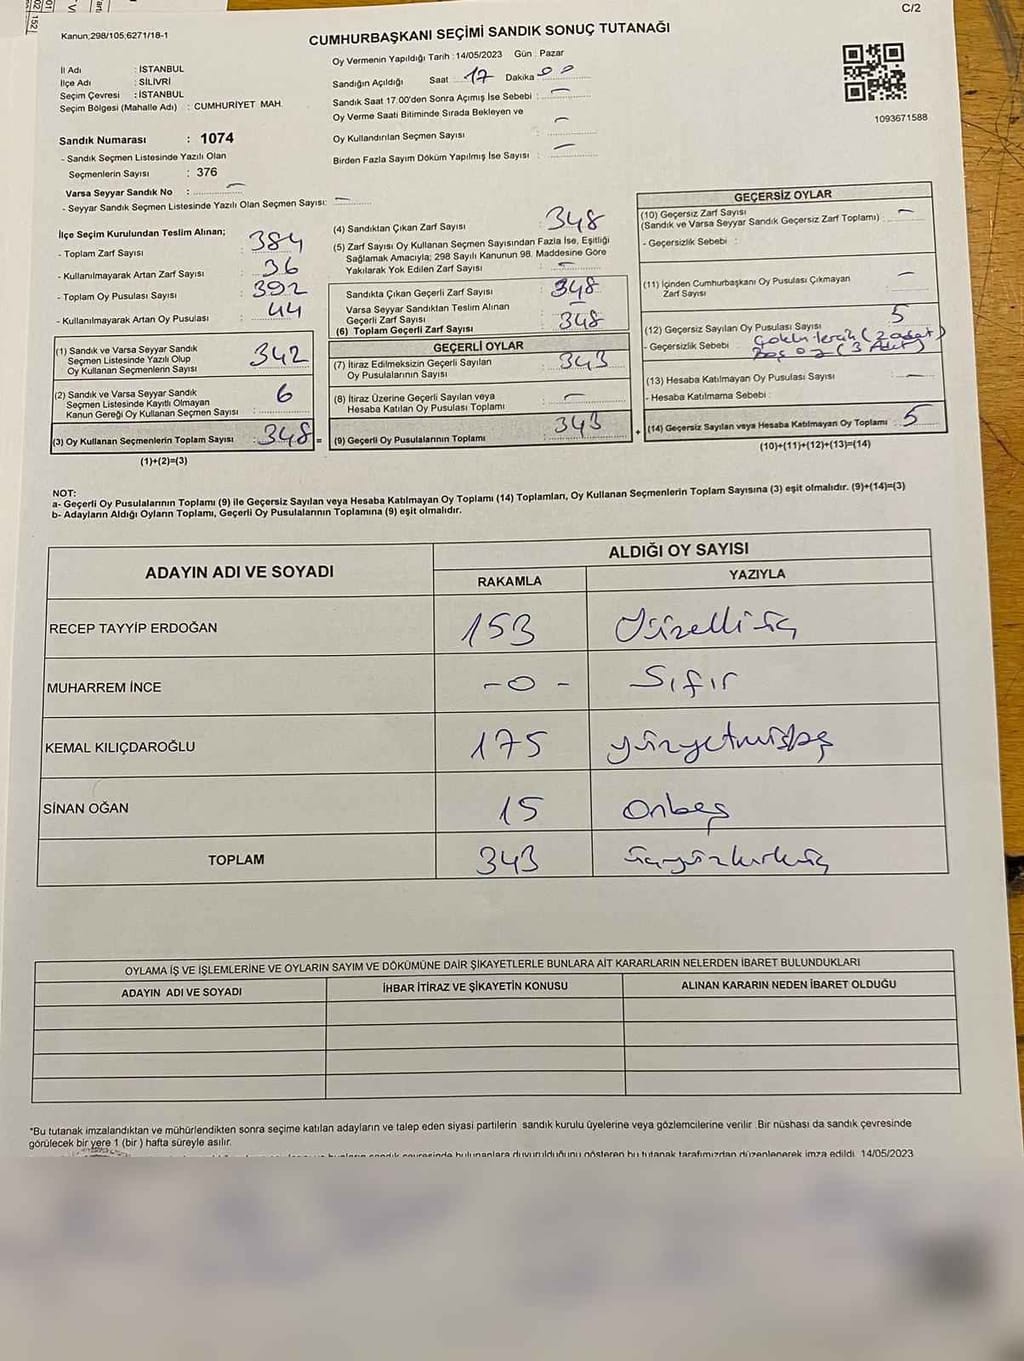 C/2
Kanun;298/105,6271/18-1
CUMHURBAŞKANI SEÇİMİ SANDIK SONUÇ TUTANAĞI
İl Adı : İSTANBUL
İlçe Adı : SİLİVRİ
Seçim Çevresi : İSTANBUL
Seçim Bölgesi (Mahalle Adı) : CUMHURİYET MAH.
Sandık Numarası : 1074
- Sandık Seçmen Listesinde Yazılı Olan
Seçmenlerin Sayısı : 376
Varsa Seyyar Sandık No : –
- Seyyar Sandık Seçmen Listesinde Yazılı Olan Seçmen Sayısı: –
Oy Vermenin Yapıldığı Tarih :14/05/2023 Gün : Pazar
Sandığın Açıldığı Saat 17 Dakika 00
Sandık Saat 17.00'den Sonra Açımış İse Sebebi : –
Oy Verme Saati Bitiminde Sırada Bekleyen ve
Oy Kullandırılan Seçmen Sayısı : –
Birden Fazla Sayım Döküm Yapılmış İse Sayısı : –
1093671588
İlçe Seçim Kurulundan Teslim Alınan;
- Toplam Zarf Sayısı : 384
- Kullanılmayarak Artan Zarf Sayısı : 36
- Toplam Oy Pusulası Sayısı : 392
- Kullanılmayarak Artan Oy Pusulası : 44
(1) Sandık ve Varsa Seyyar Sandık
Seçmen Listesinde Yazılı Olup
Oy Kullanan Seçmenlerin Sayısı : 342
(2) Sandık ve Varsa Seyyar Sandık
Seçmen Listesinde Kayıtlı Olmayan
Kanun Gereği Oy Kullanan Seçmen Sayısı : 6
(3) Oy Kullanan Seçmenlerin Toplam Sayısı : 348 =
(1)+(2)=(3)
(4) Sandıktan Çıkan Zarf Sayısı : 348
(5) Zarf Sayısı Oy Kullanan Seçmen Sayısından Fazla İse, Eşitliği
Sağlamak Amacıyla; 298 Sayılı Kanunun 98. Maddesine Göre
Yakılarak Yok Edilen Zarf Sayısı : –
Sandıkta Çıkan Geçerli Zarf Sayısı : 348
Varsa Seyyar Sandıktan Teslim Alınan
Geçerli Zarf Sayısı : –
(6) Toplam Geçerli Zarf Sayısı : 348
GEÇERLİ OYLAR
(7) İtiraz Edilmeksizin Geçerli Sayılan
Oy Pusulalarının Sayısı : 343
(8) İtiraz Üzerine Geçerli Sayılan veya
Hesaba Katılan Oy Pusulası Toplamı : –
(9) Geçerli Oy Pusulalarının Toplamı : 343 +
GEÇERSİZ OYLAR
(10) Geçersiz Zarf Sayısı
(Sandık ve Varsa Seyyar Sandık Geçersiz Zarf Toplamı) : –
- Geçersizlik Sebebi :
(11) İçinden Cumhurbaşkanı Oy Pusulası Çıkmayan
Zarf Sayısı : –
(12) Geçersiz Sayılan Oy Pusulası Sayısı : 5
- Geçersizlik Sebebi : Çoklu tercih (2 adet)
Boş oy (3 Adet)
(13) Hesaba Katılmayan Oy Pusulası Sayısı : –
- Hesaba Katılmama Sebebi :
(14) Geçersiz Sayılan veya Hesaba Katılmayan Oy Toplamı : 5
(10)+(11)+(12)+(13)=(14)
NOT:
a- Geçerli Oy Pusulalarının Toplamı (9) ile Geçersiz Sayılan veya Hesaba Katılmayan Oy Toplamı (14) Toplamları, Oy Kullanan Seçmenlerin Toplam Sayısına (3) eşit olmalıdır. (9)+(14)=(3)
b- Adayların Aldığı Oyların Toplamı, Geçerli Oy Pusulalarının Toplamına (9) eşit olmalıdır.
ADAYIN ADI VE SOYADI
ALDIĞI OY SAYISI
RAKAMLA YAZIYLA
RECEP TAYYİP ERDOĞAN 153 Yüzelliüç
MUHARREM İNCE -0- Sıfır
KEMAL KILIÇDAROĞLU 175 yüzyetmişbeş
SİNAN OĞAN 15 Onbeş
TOPLAM 343 üçyüzkırküç
OYLAMA İŞ VE İŞLEMLERİNE VE OYLARIN SAYIM VE DÖKÜMÜNE DAİR ŞİKAYETLERLE BUNLARA AİT KARARLARIN NELERDEN İBARET BULUNDUKLARI
ADAYIN ADI VE SOYADI İHBAR İTİRAZ VE ŞİKAYETİN KONUSU ALINAN KARARIN NEDEN İBARET OLDUĞU
*Bu tutanak imzalandıktan ve mühürlendikten sonra seçime katılan adayların ve talep eden siyasi partilerin sandık kurulu üyelerine veya gözlemcilerine verilir. Bir nüshası da sandık çevresinde
görülecek bir yere 1 (bir) hafta süreyle asılır.
sandık çevresinde bulunanlara duyurulduğunu gösteren bu tutanak tarafımızdan düzenlenerek imza edildi. 14/05/2023